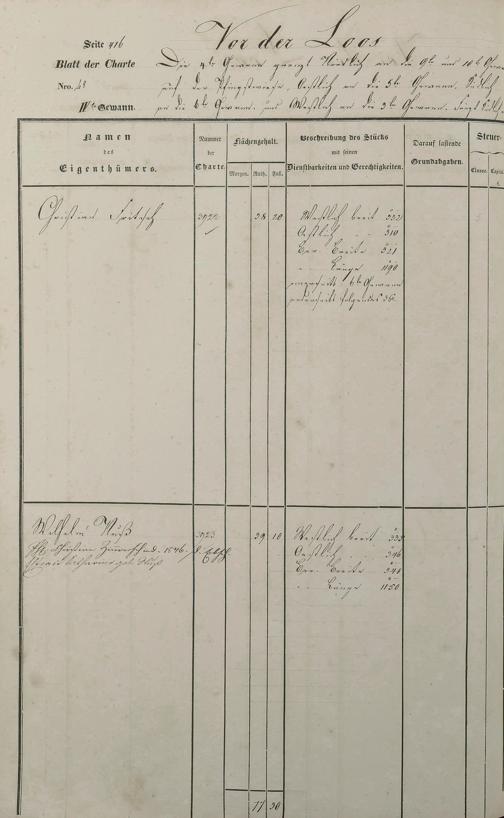 Seite 416
Vor der Loos
Blatt der Charte
Die 4te Gewann grenzt Nördlich an die 9te und 10te Gewann
Nro. 48
auf der Pfingstweide, Oestlich an die 5te Gewann, Südlich
IVte Gewann.
an die 6te Gewann, und Westlich an die 3te Gewann.
Namen
des
Eigenthümers.
Nummer
der
Charte.
Flächengehalt.
Morgen. Ruth. Fuß.
Beschreibung des Stücks
mit seinen
Dienstbarkeiten und Gerechtigkeiten.
Darauf lastende
Grundabgaben.
Steuer-
Classe. Capit
Christian Fritsch 3922 38 20 Westlich breit 332
Oestlich " 310
Ger. Breite 321
" Länge 1190
einerseits 6te Gewann
anderseits folgendes St.
Wilhelm Reuß 3923 39 10 Westlich breit 335
1846.
Oestlich " 346
Ger. Breite 340
" Länge 1150
77 30